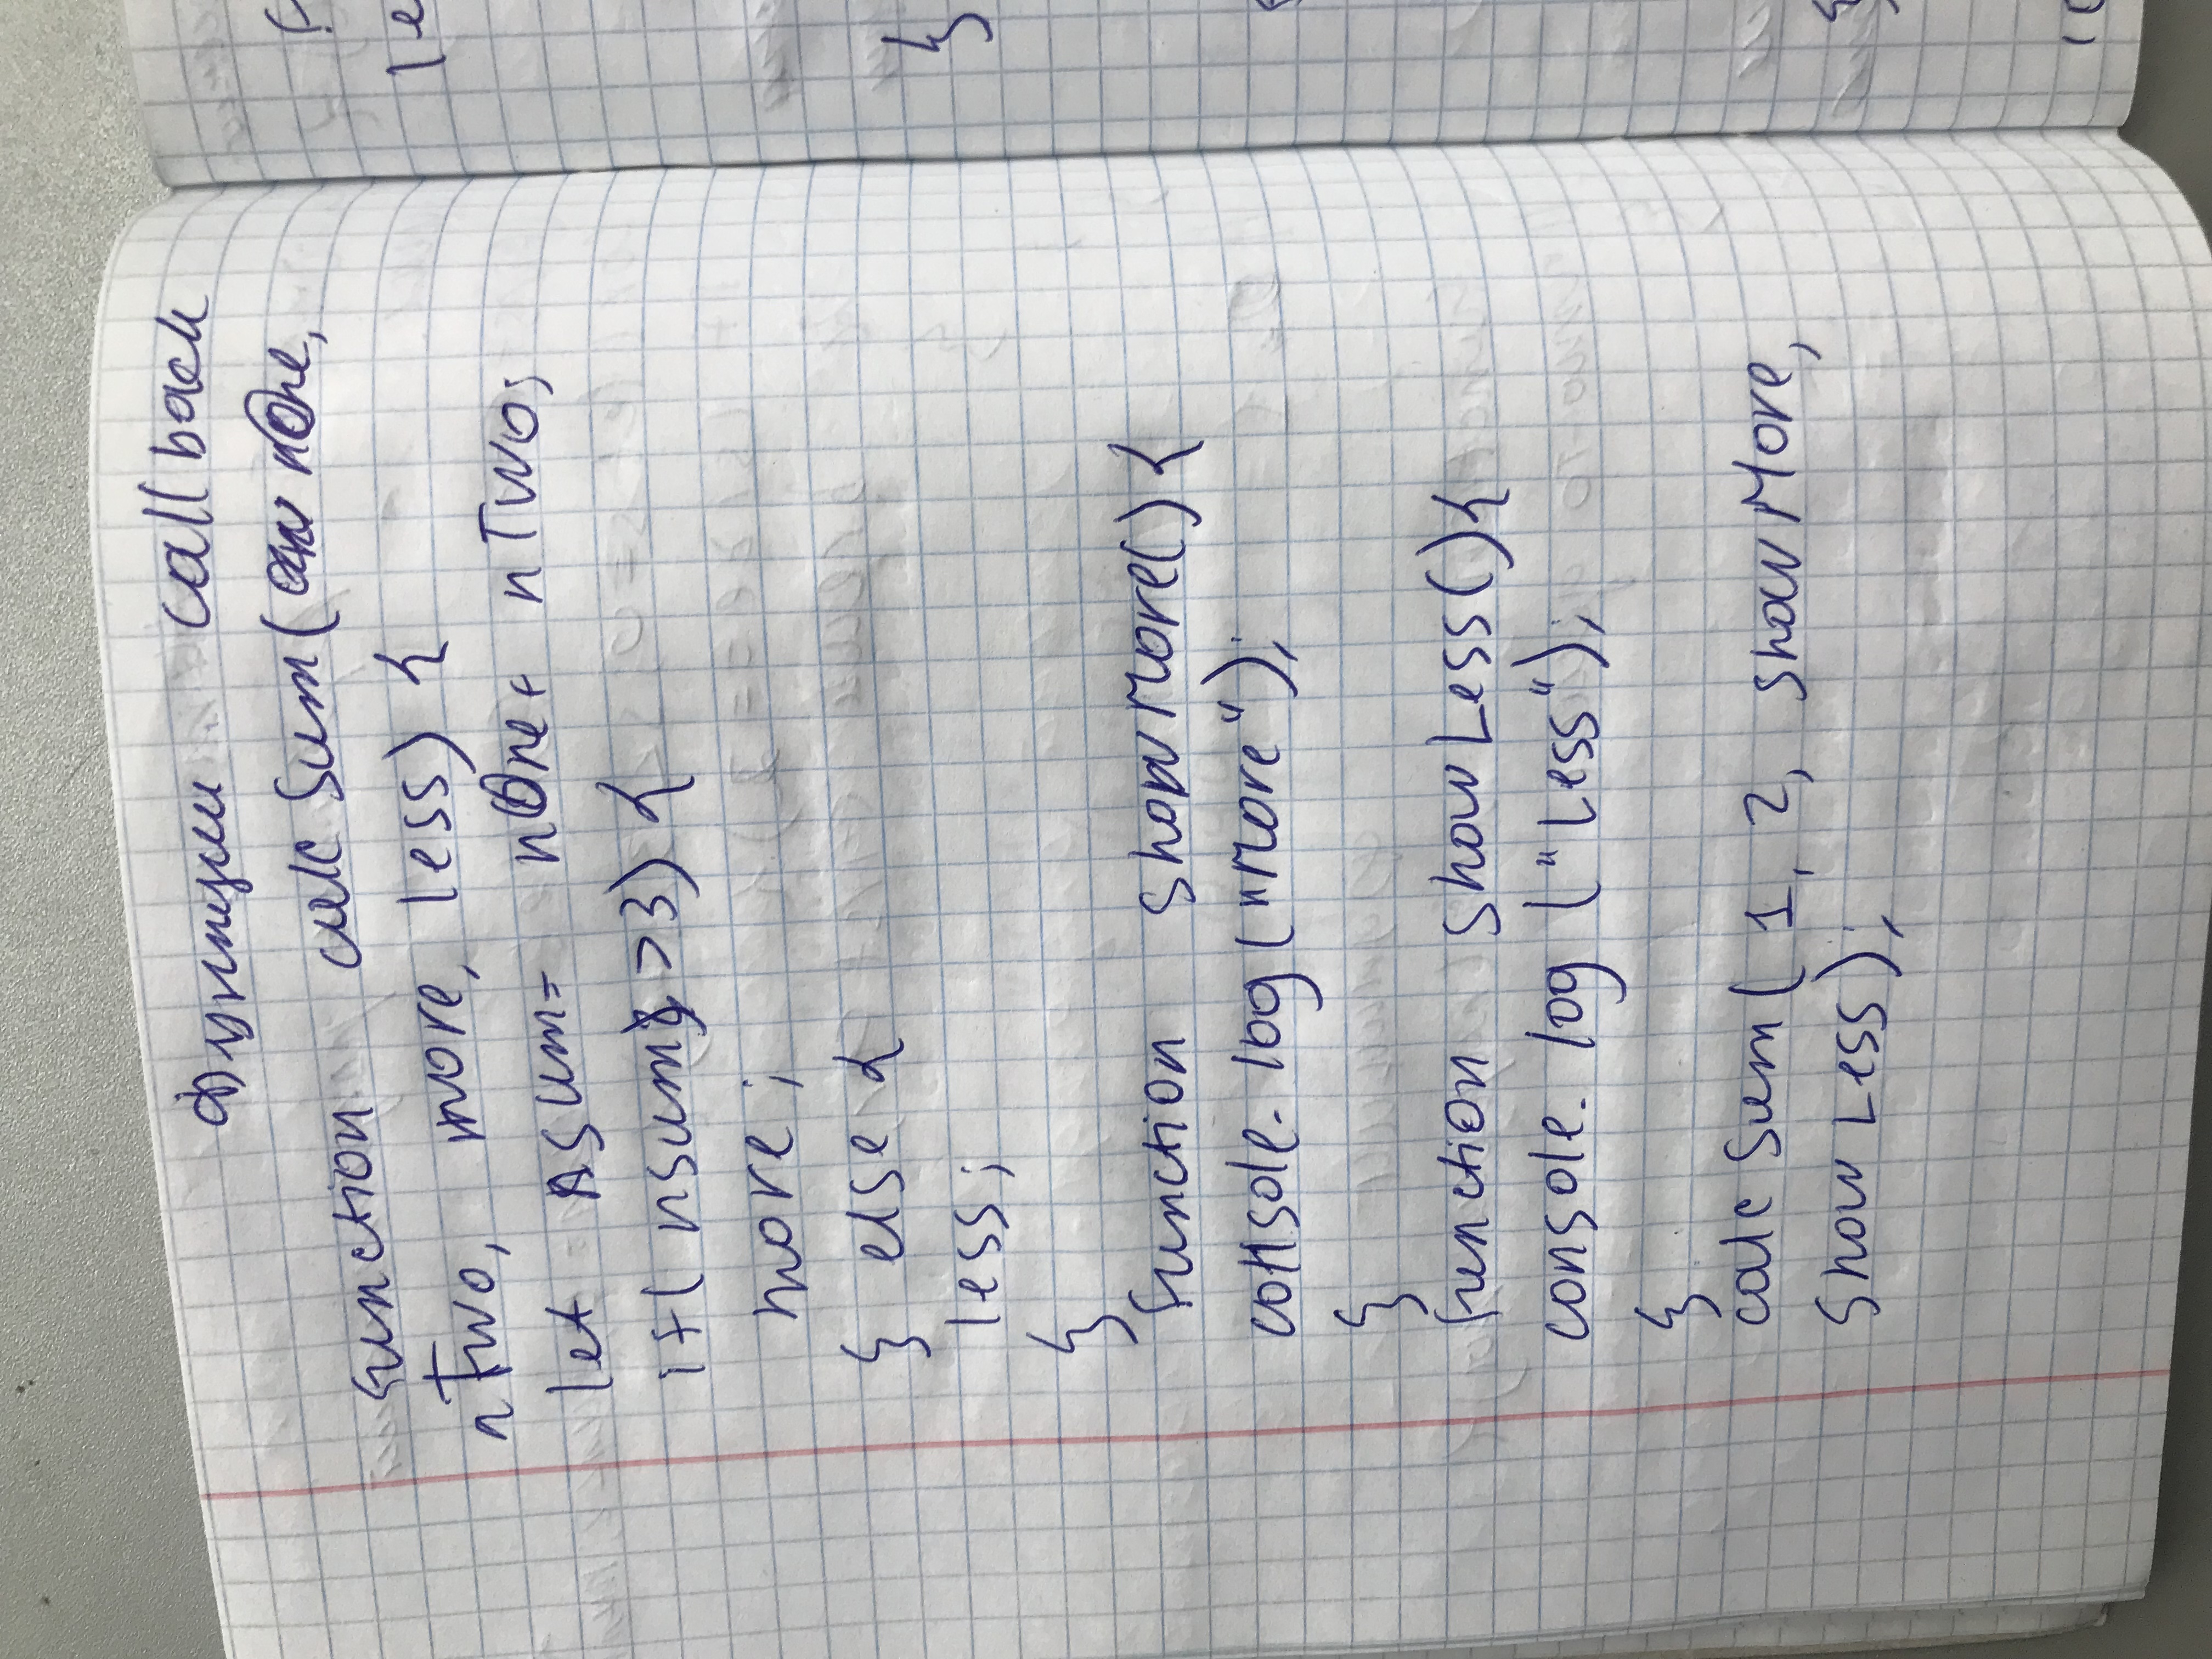 Функции callback
function calcSum(nOne,
nTwo, more, less) {
let nsum= nOne+ nTwo;
if( nsum >3) {
more;
} else {
less;
}
function showMore(){
console.log("More");
}
function showLess(){
console.log ("Less");
}
calcSum( 1, 2, showMore,
showLess);